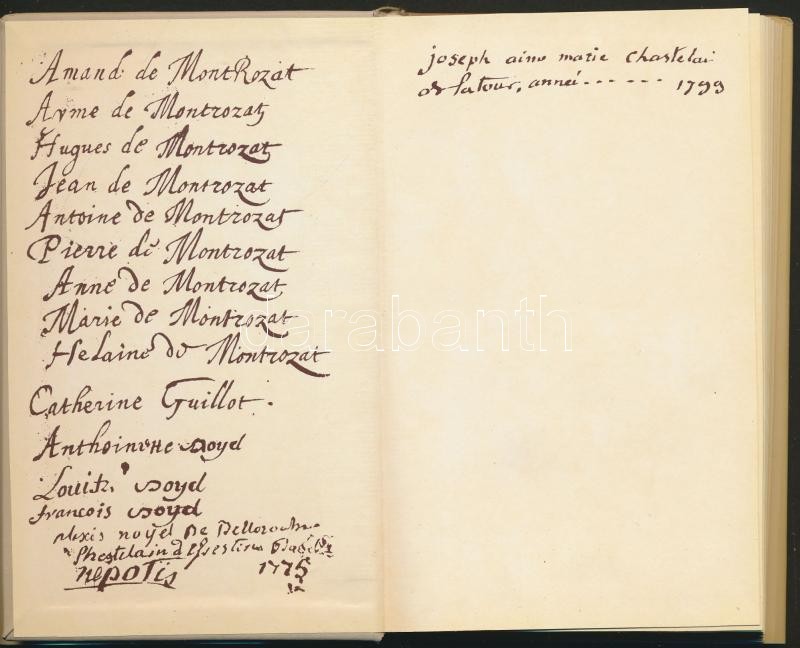 Amand de MontRozat
Ayme de Montrozat
Hugues de Montrozat
Jean de Montrozat
Antoine de Montrozat
Pierre de Montrozat
Anne de Montrozat
Marie de Montrozat
Helaine de Montrozat
Catherine Guillot.
Anthoinette noyel
Louise noyel
francois noyel
alexis noyel De Belleroche
Chastelain d
nepotis 1775
joseph aimé marie chastelai
de latour, anneé - - - - - - 1799
darabanth